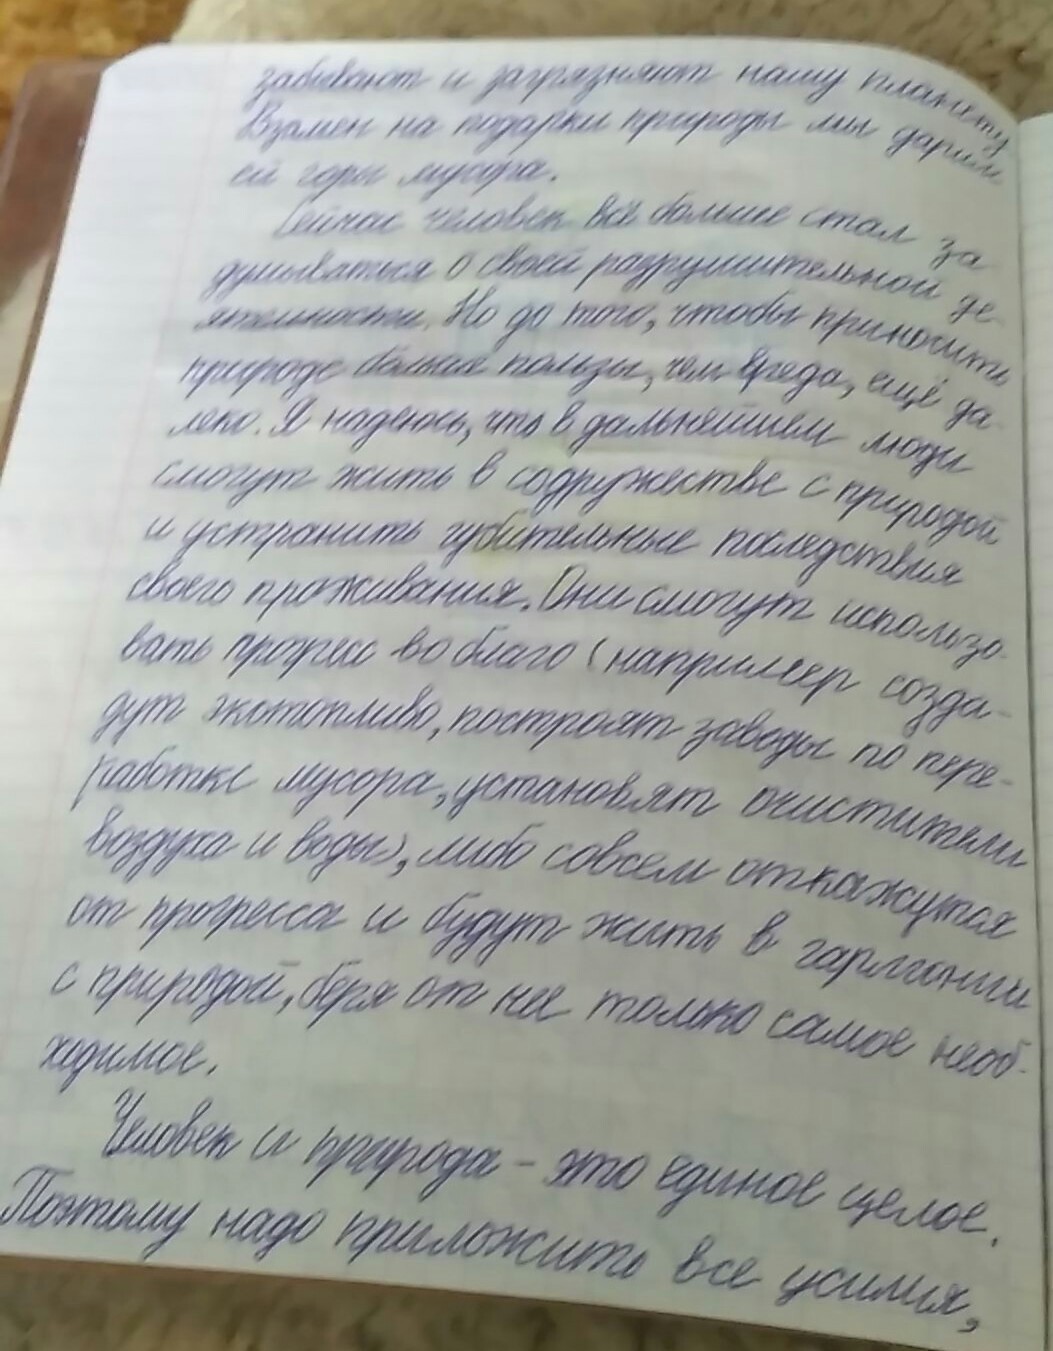 забивают и загрязняют нашу планету.
Взамен на подарки природы мы дарим
ей горы мусора.
Сейчас человек всё больше стал за
думываться о своей разрушительной де-
ятельности. Но до того, чтобы приносить
природе больше пользы, чем вреда, ещё да-
леко. Я надеюсь, что в дальнейшем люди
смогут жить в содружестве с природой
и устранить губительные последствия
своего проживания. Они смогут использо-
вать прогресс во благо (например созда-
дут экотопливо, построят заводы по пере-
работке мусора, установят очистители
воздуха и воды), либо совсем откажутся
от прогресса и будут жить в гармонии
с природой, беря от нее только самое необ-
ходимое.
Человек и природа - это единое целое.
Поэтому надо приложить все усилия,